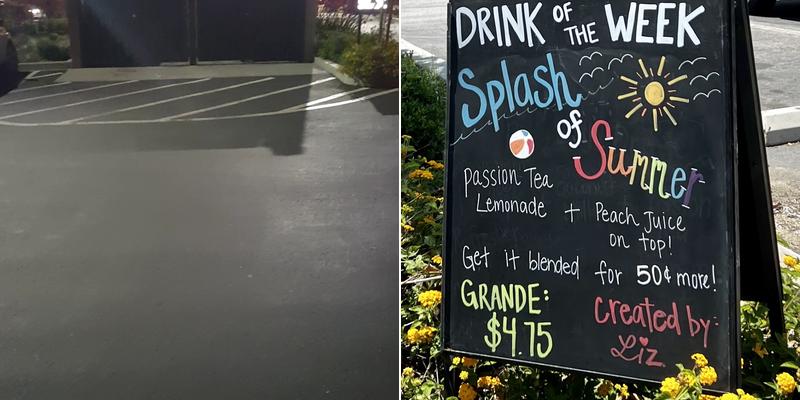 DRINK OF THE WEEK
Splash
of
Summer
Passion Tea
Lemonade + Peach Juice
on top!
Get it blended for 50¢ more!
GRANDE:
$4.75
Created by:
Liz